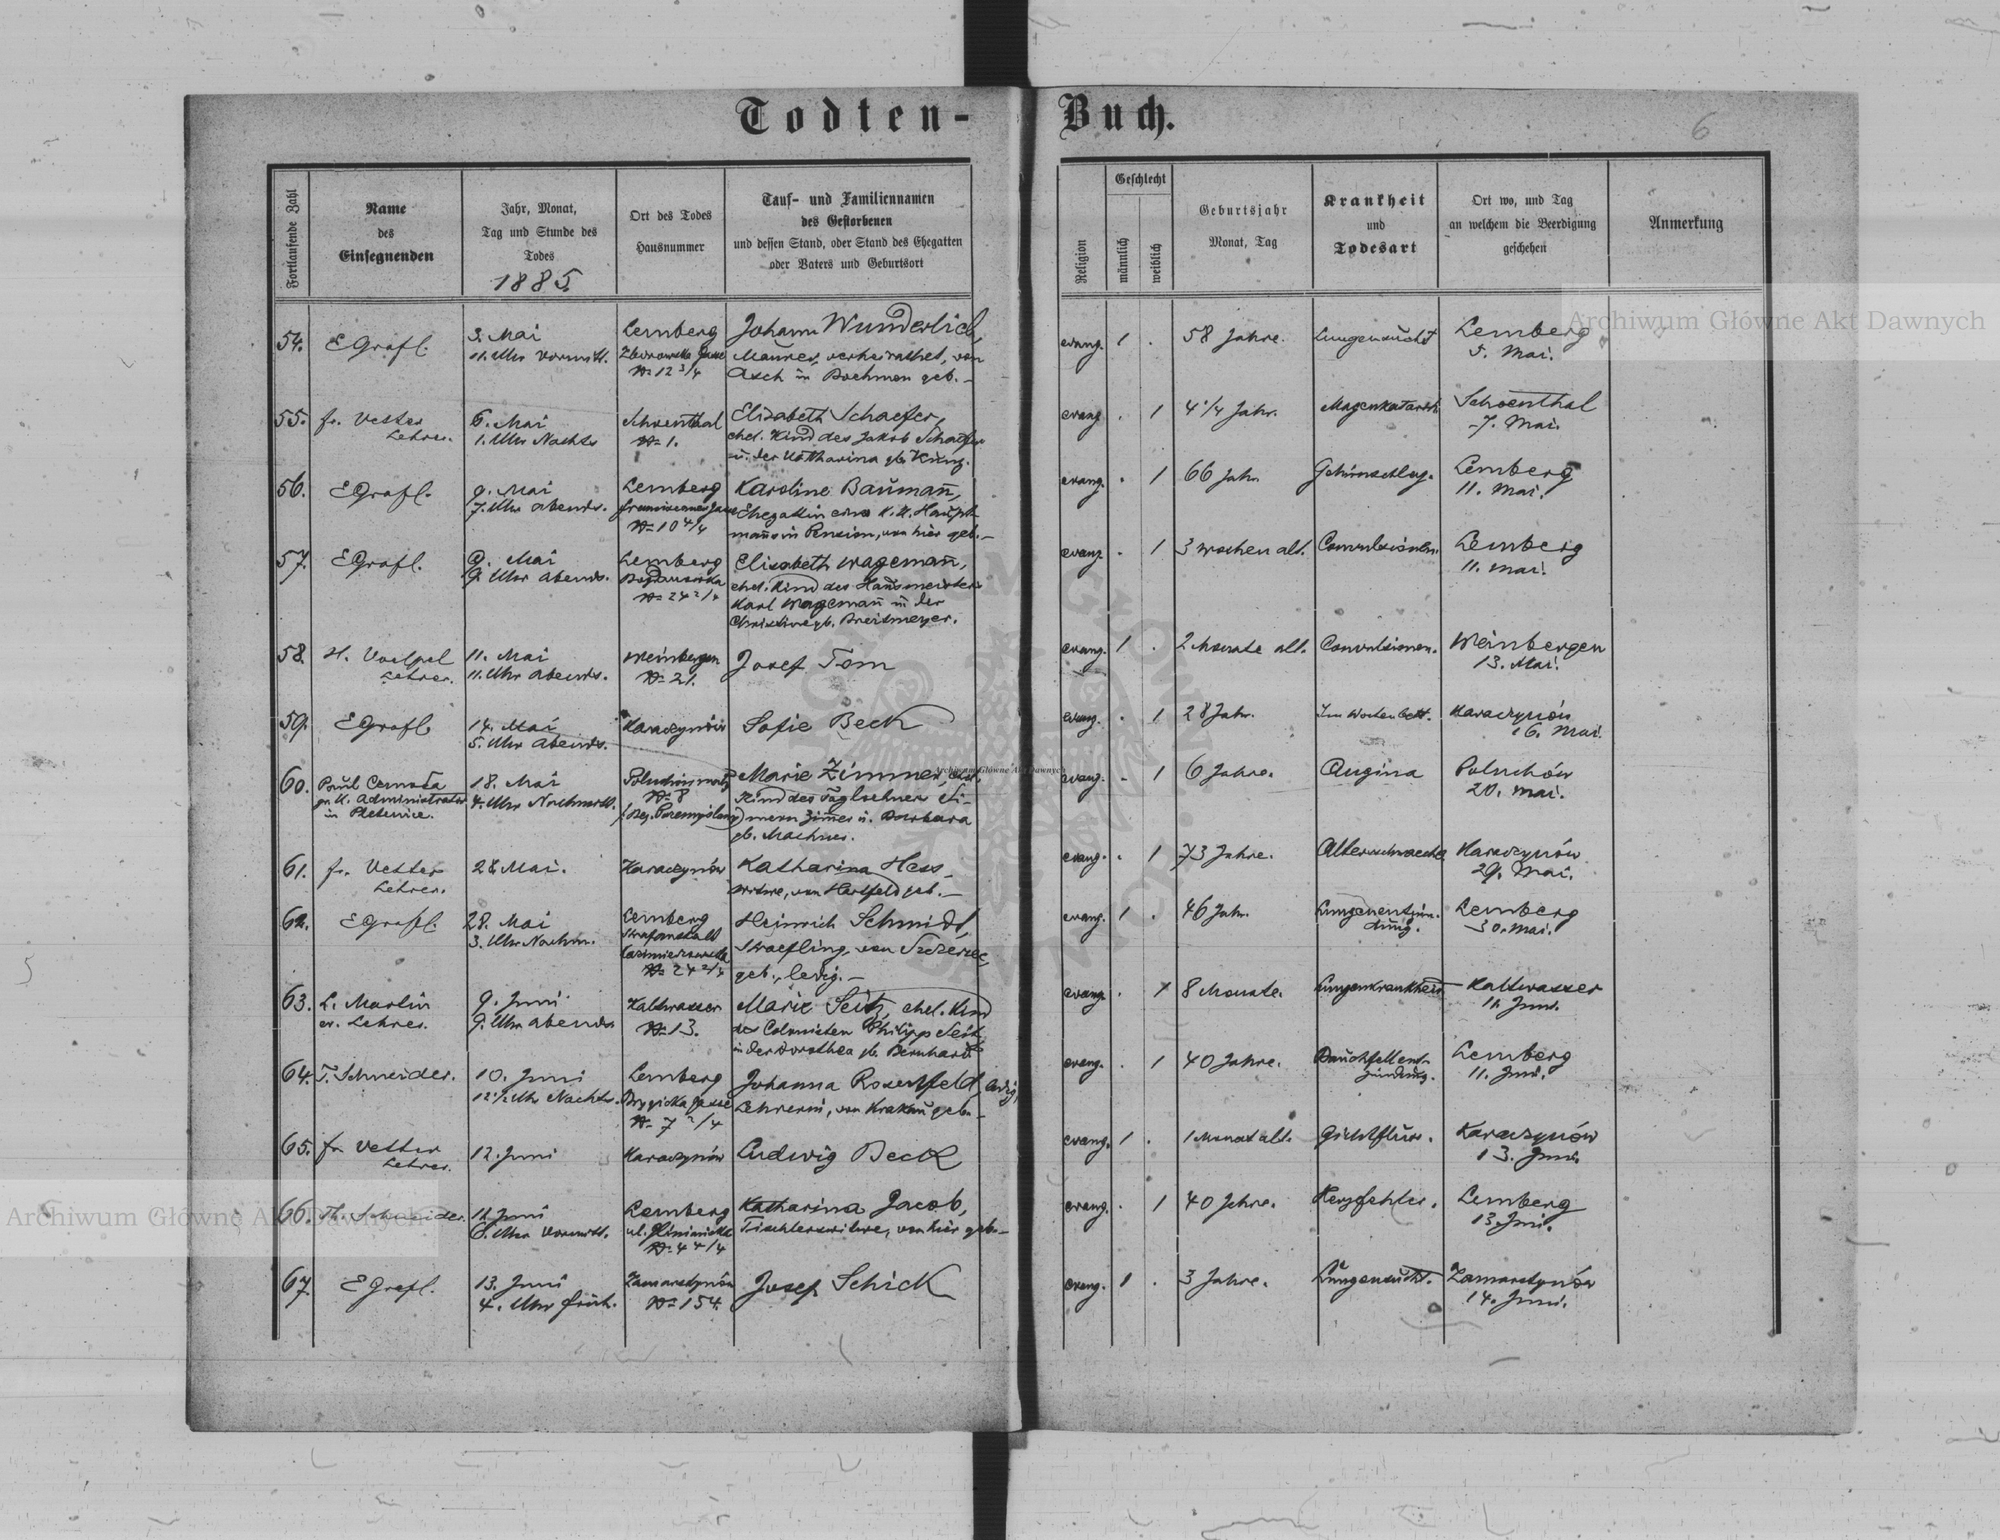 Todten- Buch.
6
Fortlaufende Zahl
Name
des
Einsegnenden
Jahr, Monat,
Tag und Stunde des
Todes
1885
Ort des Todes
Hausnummer
Tauf- und Familiennamen
des Gestorbenen
und dessen Stand, oder Stand des Ehegatten
oder Vaters und Geburtsort
Religion
Geschlecht
männlich
weiblich
Geburtsjahr
Monat, Tag
Krankheit
und
Todesart
Ort wo, und Tag
an welchem die Beerdigung
geschehen
Anmerkung
54. EGrafl. 3. Mai Lemberg Johann Wunderlich,
11. Uhr Vormitt. Gasse Maurer, verheirathet, von
No 12 3/4 Asch in Boehmen geb. –
evang. 1 . 58 Jahre. Lungensucht Lemberg
5. Mai.
55. fr. Vetter 6. Mai Schoenthal Elisabeth Schaefer,
Lehrer. 1. Uhr Nachts No 1. ehel. Kind des Jakob Schaefer
u. der Katharina gb. Küng.
evang. . 1 4 1/4 Jahr. Magenkatarrh Schoenthal
7. Mai.
56. EGrafl. 9. Mai Lemberg Karoline Baumañ,
7. Uhr abends. Ehegattin eines K. K. Haupt-
No 10 4/4 mañs in Pension, von hier geb. –
evang. . 1 66 Jahr. Gehirnschlag. Lemberg
11. Mai.
57. EGrafl. 9. Mai Lemberg Elisabeth Wagemañ,
9. Uhr abends. Bogdanowka ehel. Kind des Hausmeisters
No 24 2/4 Karl Wagemañ u. der
Christine gb. Breitmeyer.
evang. . 1 3 Wochen alt. Convulsionen. Lemberg
11. Mai.
58. H. Voelpel 11. Mai Weinbergen Josef Tom
Lehrer. 11. Uhr abends. No 21.
evang. 1 . 2 Monate alt. Convulsionen. Weinbergen
13. Mai.
59. EGrafl 14. Mai Karaczynów Sofie Beck
5. Uhr abends.
evang. . 1 28 Jahr. Im Wochenbett. Karaczynów
16. Mai.
60. Paul 18. Mai Marie Zimmer, ehel.
gr. K. Administrator 4. Uhr Nachmitt. No 8 Kind des Tagloehner Si-
in (Bez. Przemyslany) meon Zim̃er u. Barbara
gb. Machner.
evang. . 1 6 Jahre. Angina Poluchów
20. Mai.
61. fr. Vetter 28 Mai. Karaczynów Katharina Hess,
Lehrer. Witwe, von Hartfeld geb. –
evang. . 1 73 Jahre. Altersschwaeche Karaczynów
29. Mai.
62. EGrafl. 28. Mai Lemberg Heinrich Schmidt,
3. Uhr Nachm. Strafanstalt Straefling, von Szczerzec
Kazimierzowska geb., ledig. –
No 24 2/4
evang. 1 . 46 Jahr. Lungenentzün- Lemberg
dung. 30. Mai.
63. L. Martin 9. Juni Kaltwasser Marie Seitz, ehel. Kind
ev. Lehrer. 9. Uhr abends No 13. des Colonisten Philipp Seitz
u. der Dorothea gb. Bernhardt
evang. . 1 8 Monate. Lungenkrankheit Kaltwasser
11. Juni.
64. T. Schneider. 10. Juni Lemberg Johanna Rosenfeld, ledig,
12 1/2 Uhr Nachts. Gasse Lehrerin, von Krakau geb. –
No 7 2/4
evang. . 1 40 Jahre. Bauchfellent- Lemberg
zündung. 11. Juni.
65. fr. Vetter 12. Juni Karaczynów Ludwig Beck
Lehrer.
evang. 1 . 1 Monat alt. Karaczynów
13. Juni.
66. Th. Schneider. 11. Juni Lemberg Katharina Jacob,
6. Uhr Vormitt. ul. Tischlerswitwe, von hier geb. –
No 4 4/4
evang. . 1 40 Jahre. Herzfehler. Lemberg
13. Juni.
67. EGrafl. 13. Juni Zamarstynów Josef Schick
4. Uhr früh. No 154.
evang. 1 . 3 Jahre. Lungensucht. Zamarstynów
14. Juni.
Archiwum Główne Akt Dawnych
Archiwum Główne Akt Dawnych
Archiwum Główne Akt Dawnych